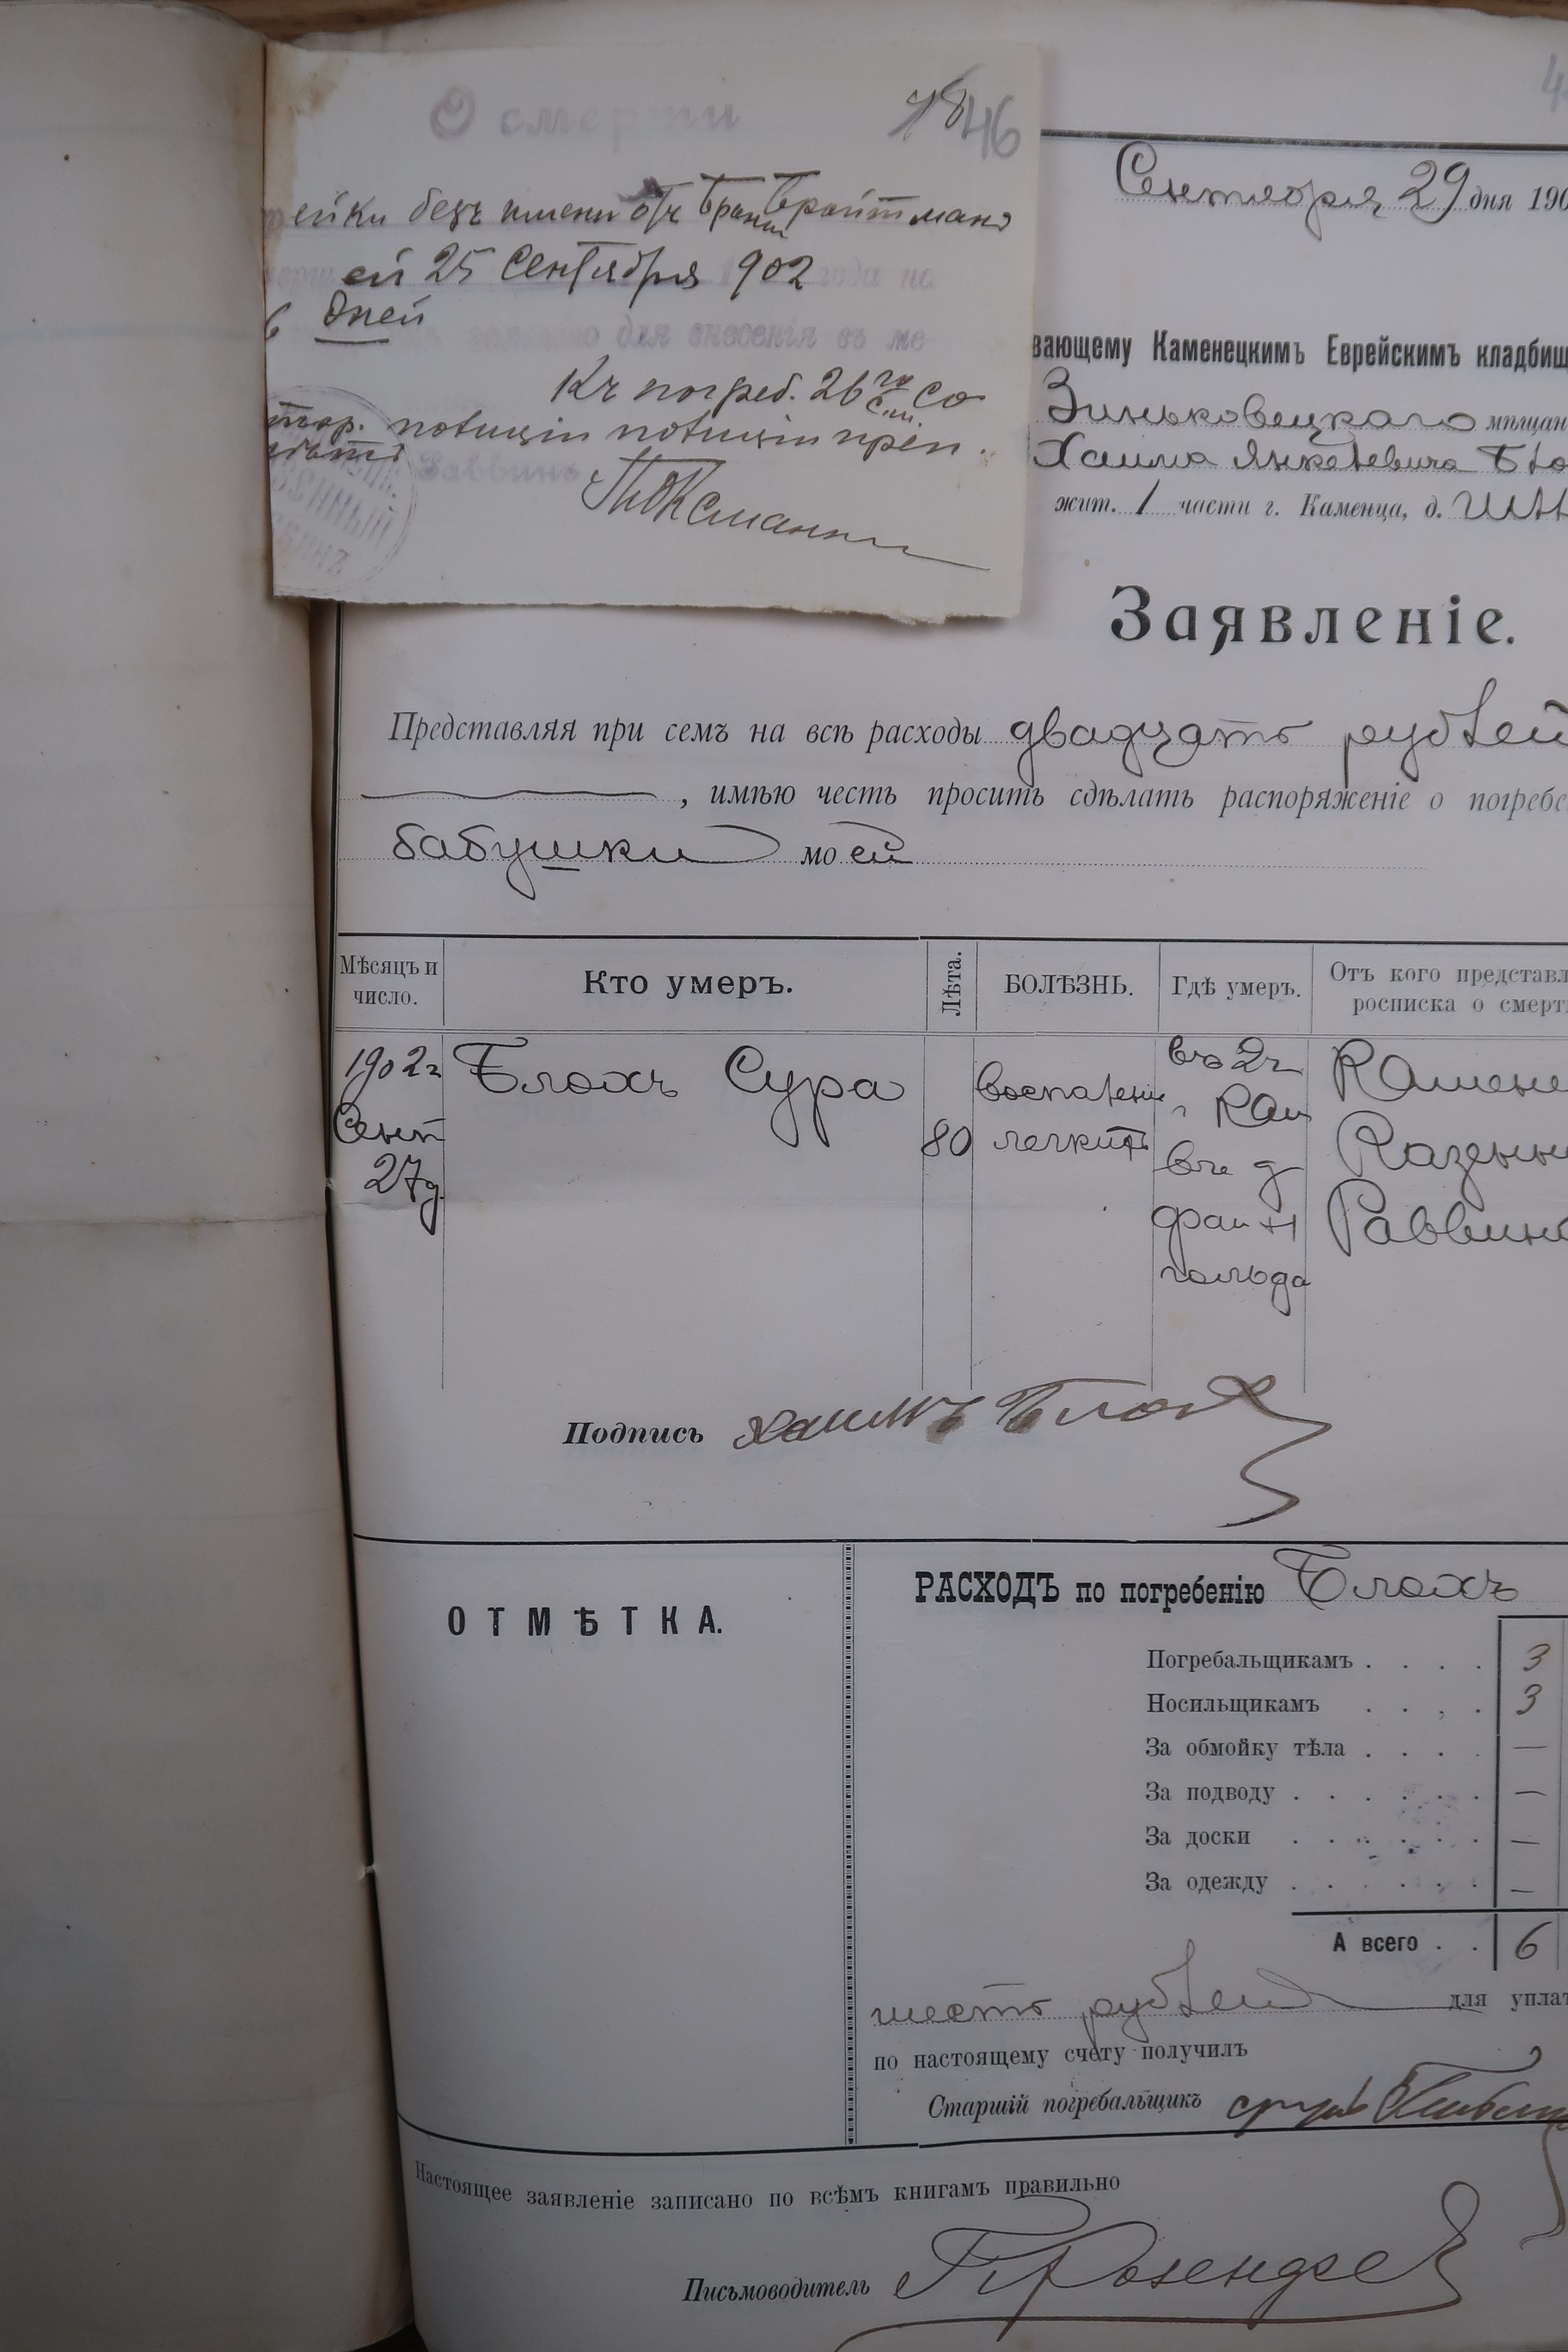 О смерти
46
ейки безъ имени отч Брани Бройтмана
ей 25 Сентября 902 года на
6 дней
для внесенія въ ме
Къ погреб. 26 го со
Раввинъ
ЕННЫЙ
Сентября 29 дня 190
вающему Каменецкимъ Еврейскимъ кладбищ
Зиньковецкаго мѣщан
Хаима Янкелевича Бло
жит. 1 части г. Каменца, д.
Заявленіе.
Представляя при семъ на всѣ расходы двадцать рублей
, имѣю честь просить сдѣлать распоряженіе о погребе
бабушки моей
Мѣсяцъ и число.
Кто умеръ.
Лѣта.
БОЛѢЗНЬ.
Гдѣ умеръ.
Отъ кого представл
росписка о смерт
1902 г
Сент
27 д.
Блохъ Сура
80
воспаленіе
легкихъ
въ 2 ч
г Кам
въ д
Фаин
гольда
Камене
Казенн
Раввин
Подпись Хаимъ Блох
ОТМѢТКА.
РАСХОДЪ по погребенію Блохъ
Погребальщикамъ . . . . 3
Носильщикамъ . . . . 3
За обмойку тѣла . . . . —
За подводу . . . . . . —
За доски . . . . . . —
За одежду . . . . . . —
А всего . . 6
шесть рублей для уплат
по настоящему счету получилъ
Старшій погребальщикъ
Настоящее заявленіе записано по всѣмъ книгамъ правильно
Письмоводитель